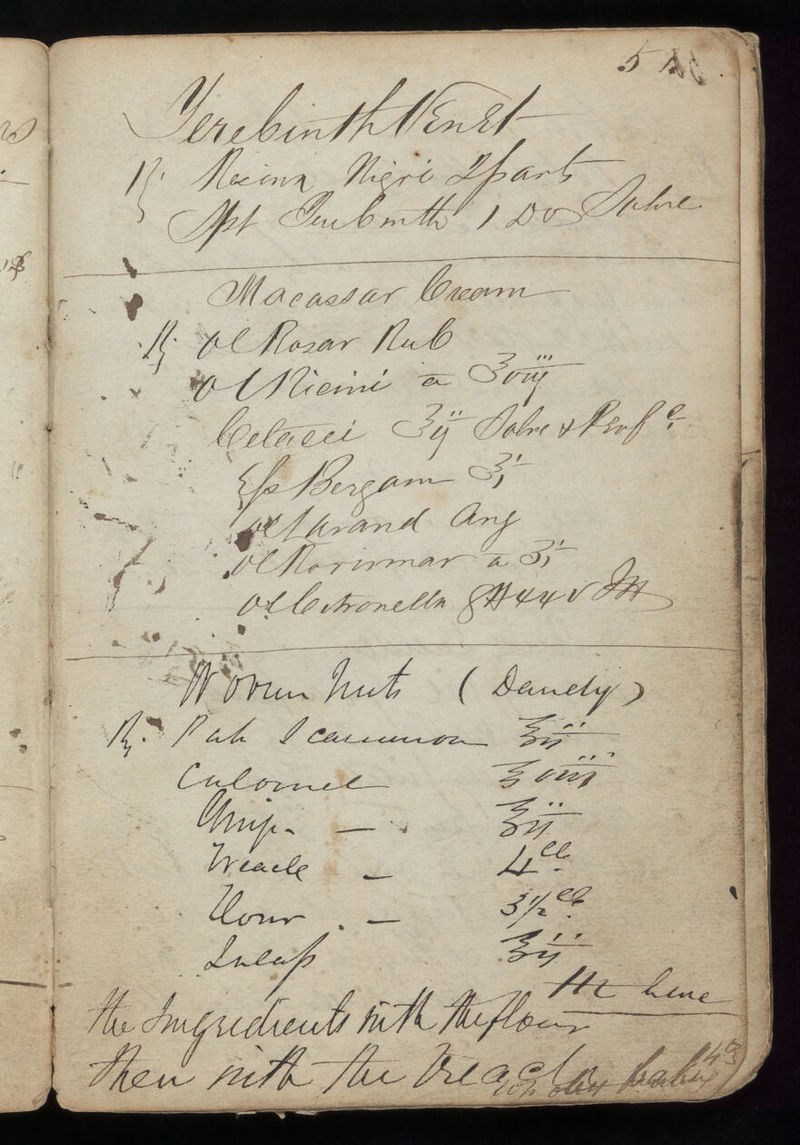 51
Terebinth Venet
℞ Resina Nigri 2 parts
Spt Terebinth 1 Do Solve
Macassar Cream
℞ Ol Rosar Rub
Ol Ricini a ℥viij
Cetacei ℥ij Solve &
Ess Bergam ℥i
Ol Lavand Ang
Ol Rorismar a ʒi
Ol Citronella
Worm Nuts (Dandy)
℞ Pulv Scammon ℥ij
Calomel ℥viij
Gingr — ℥ij
Treacle — 4 lb
Flour — 3½ lb
Jalap ℥ij
the Ingredients with the flour
then with the Treacle